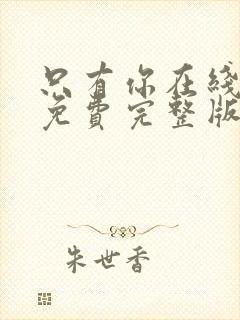 只有你在线
免费完整版
朱世香